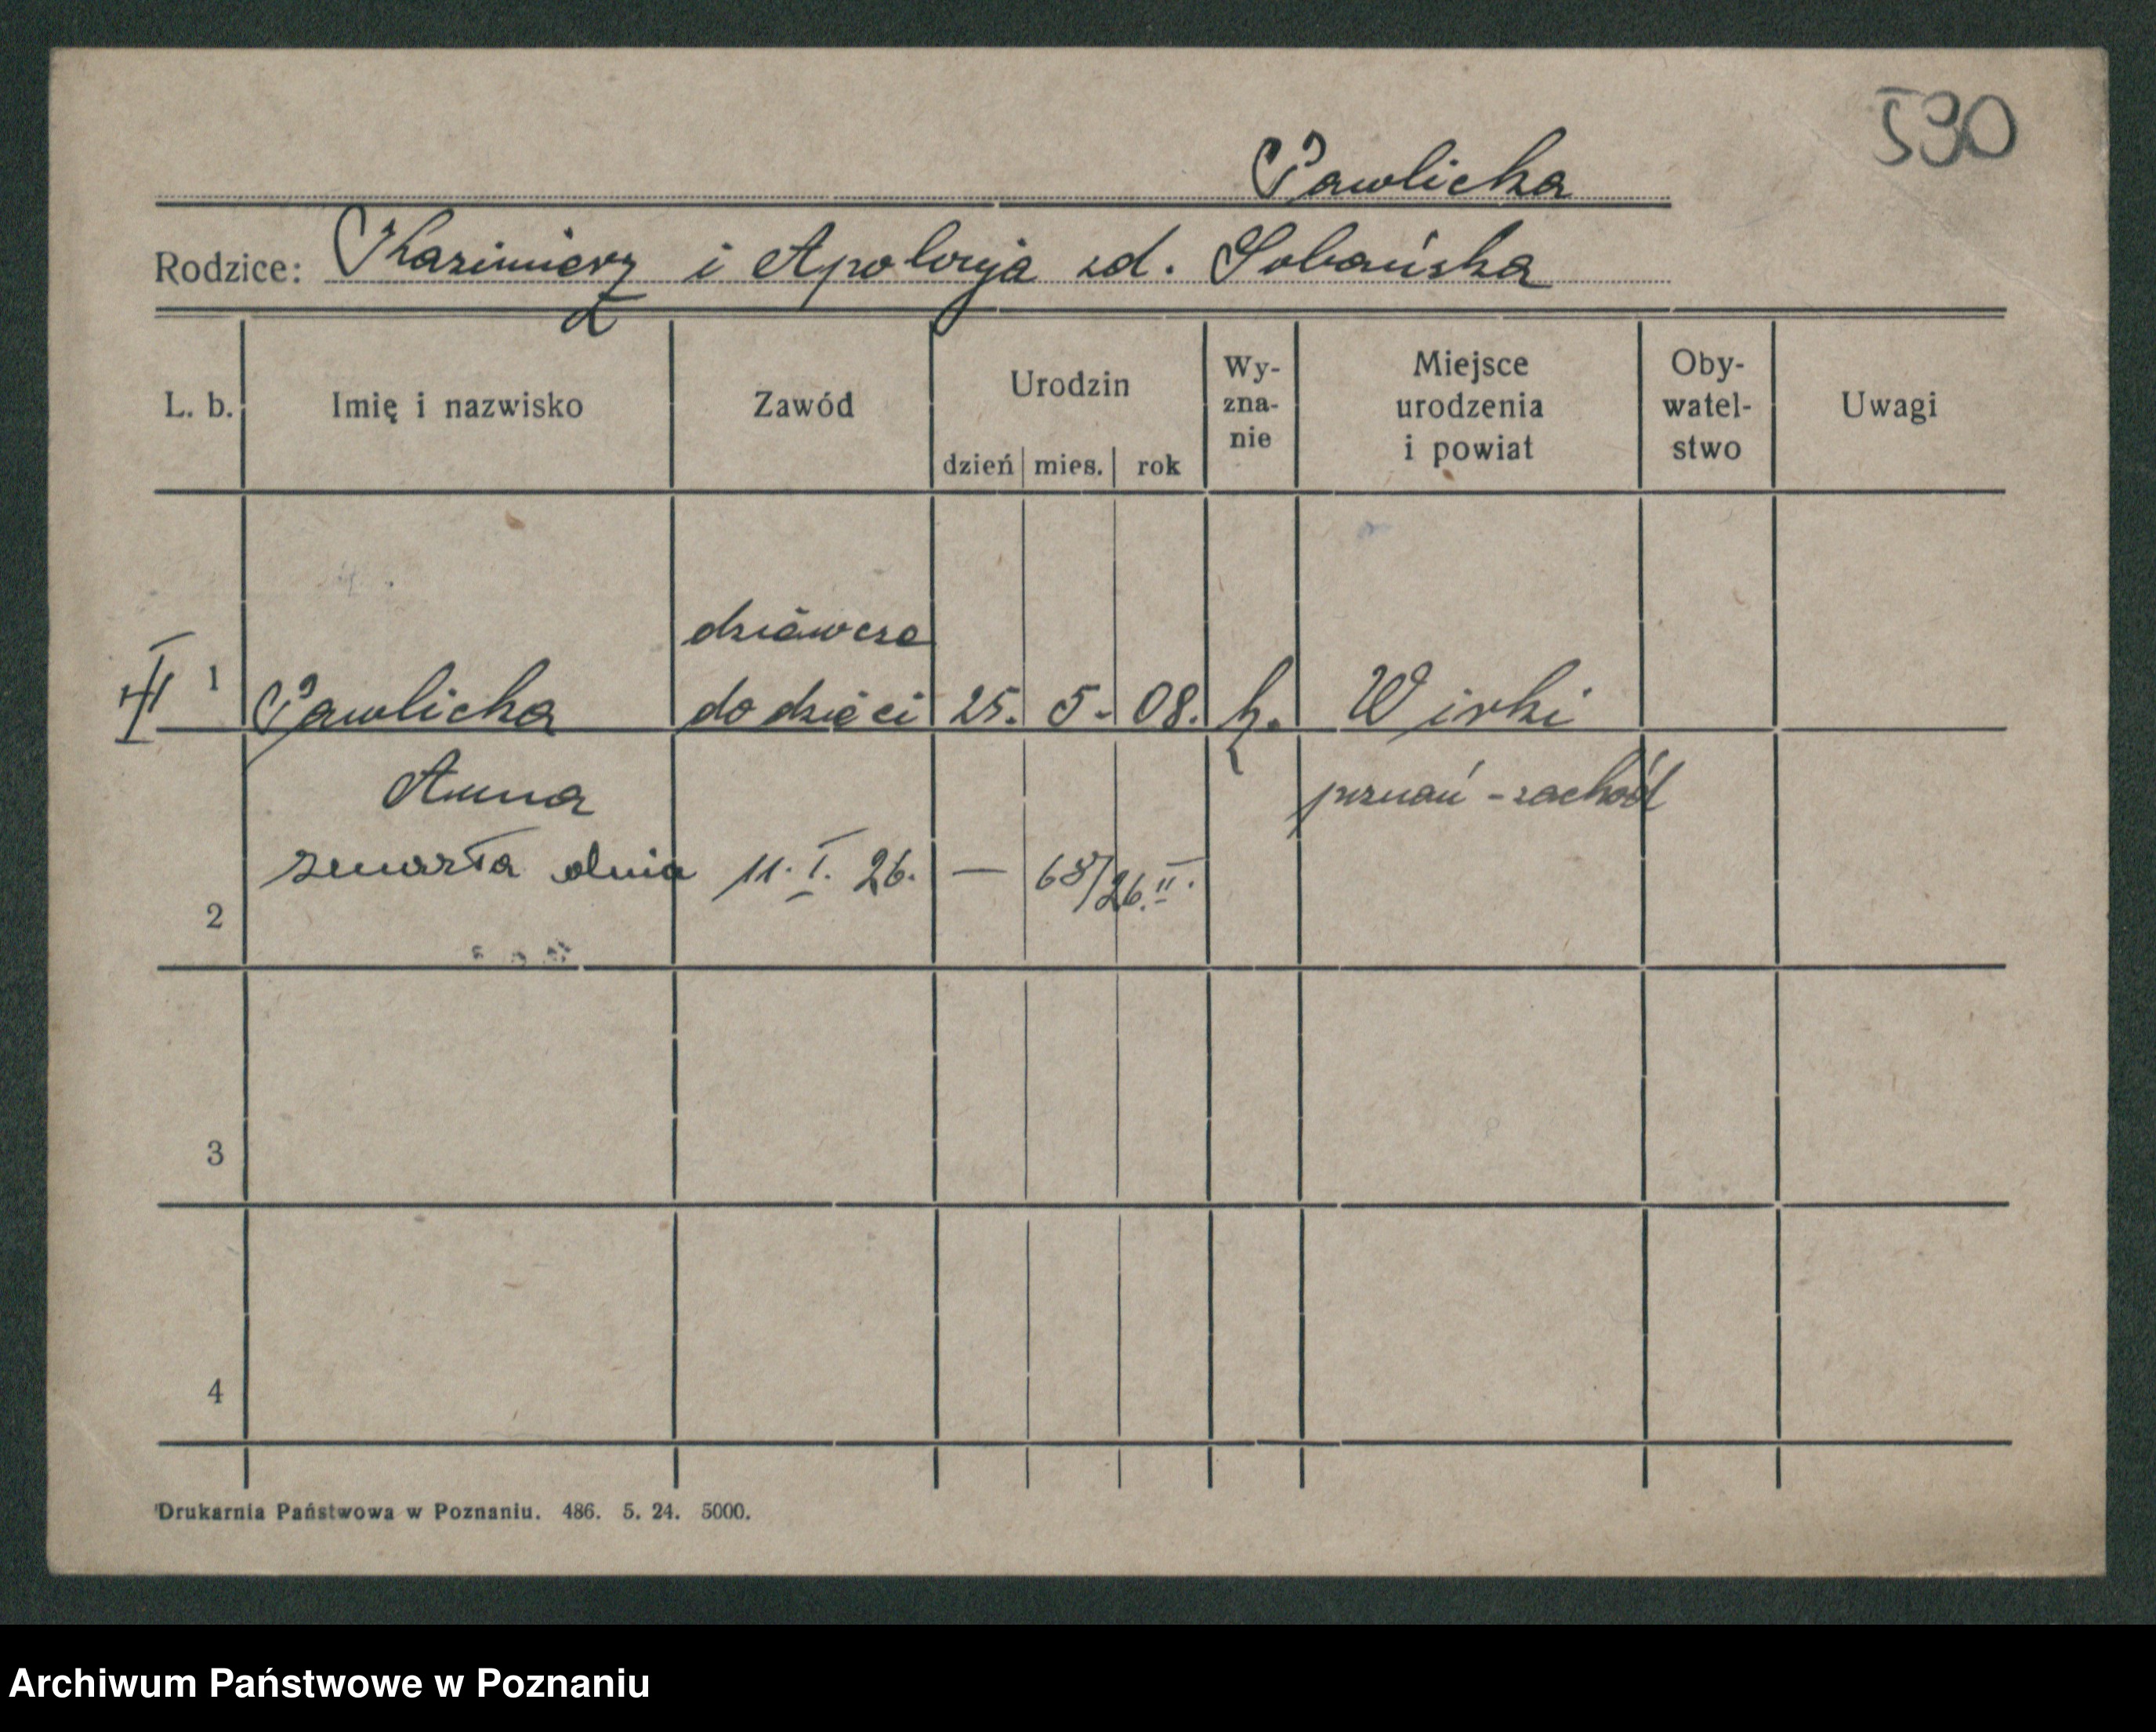 530
Pawlicka
Rodzice: Kazimierz i Apolonja zd. Sobańska
L. b. Imię i nazwisko Zawód Urodzin dzień mies. rok Wy-zna-nie Miejsce urodzenia i powiat Oby-watel-stwo Uwagi
dziewcze
1 Pawlicka do dzieci 25. 5. 08. k. Wirki
Anna poznań-zachód
zmarła dnia 11. I. 26. — 68/26.II.
2
3
4
Drukarnia Państwowa w Poznaniu. 486. 5. 24. 5000.
Archiwum Państwowe w Poznaniu